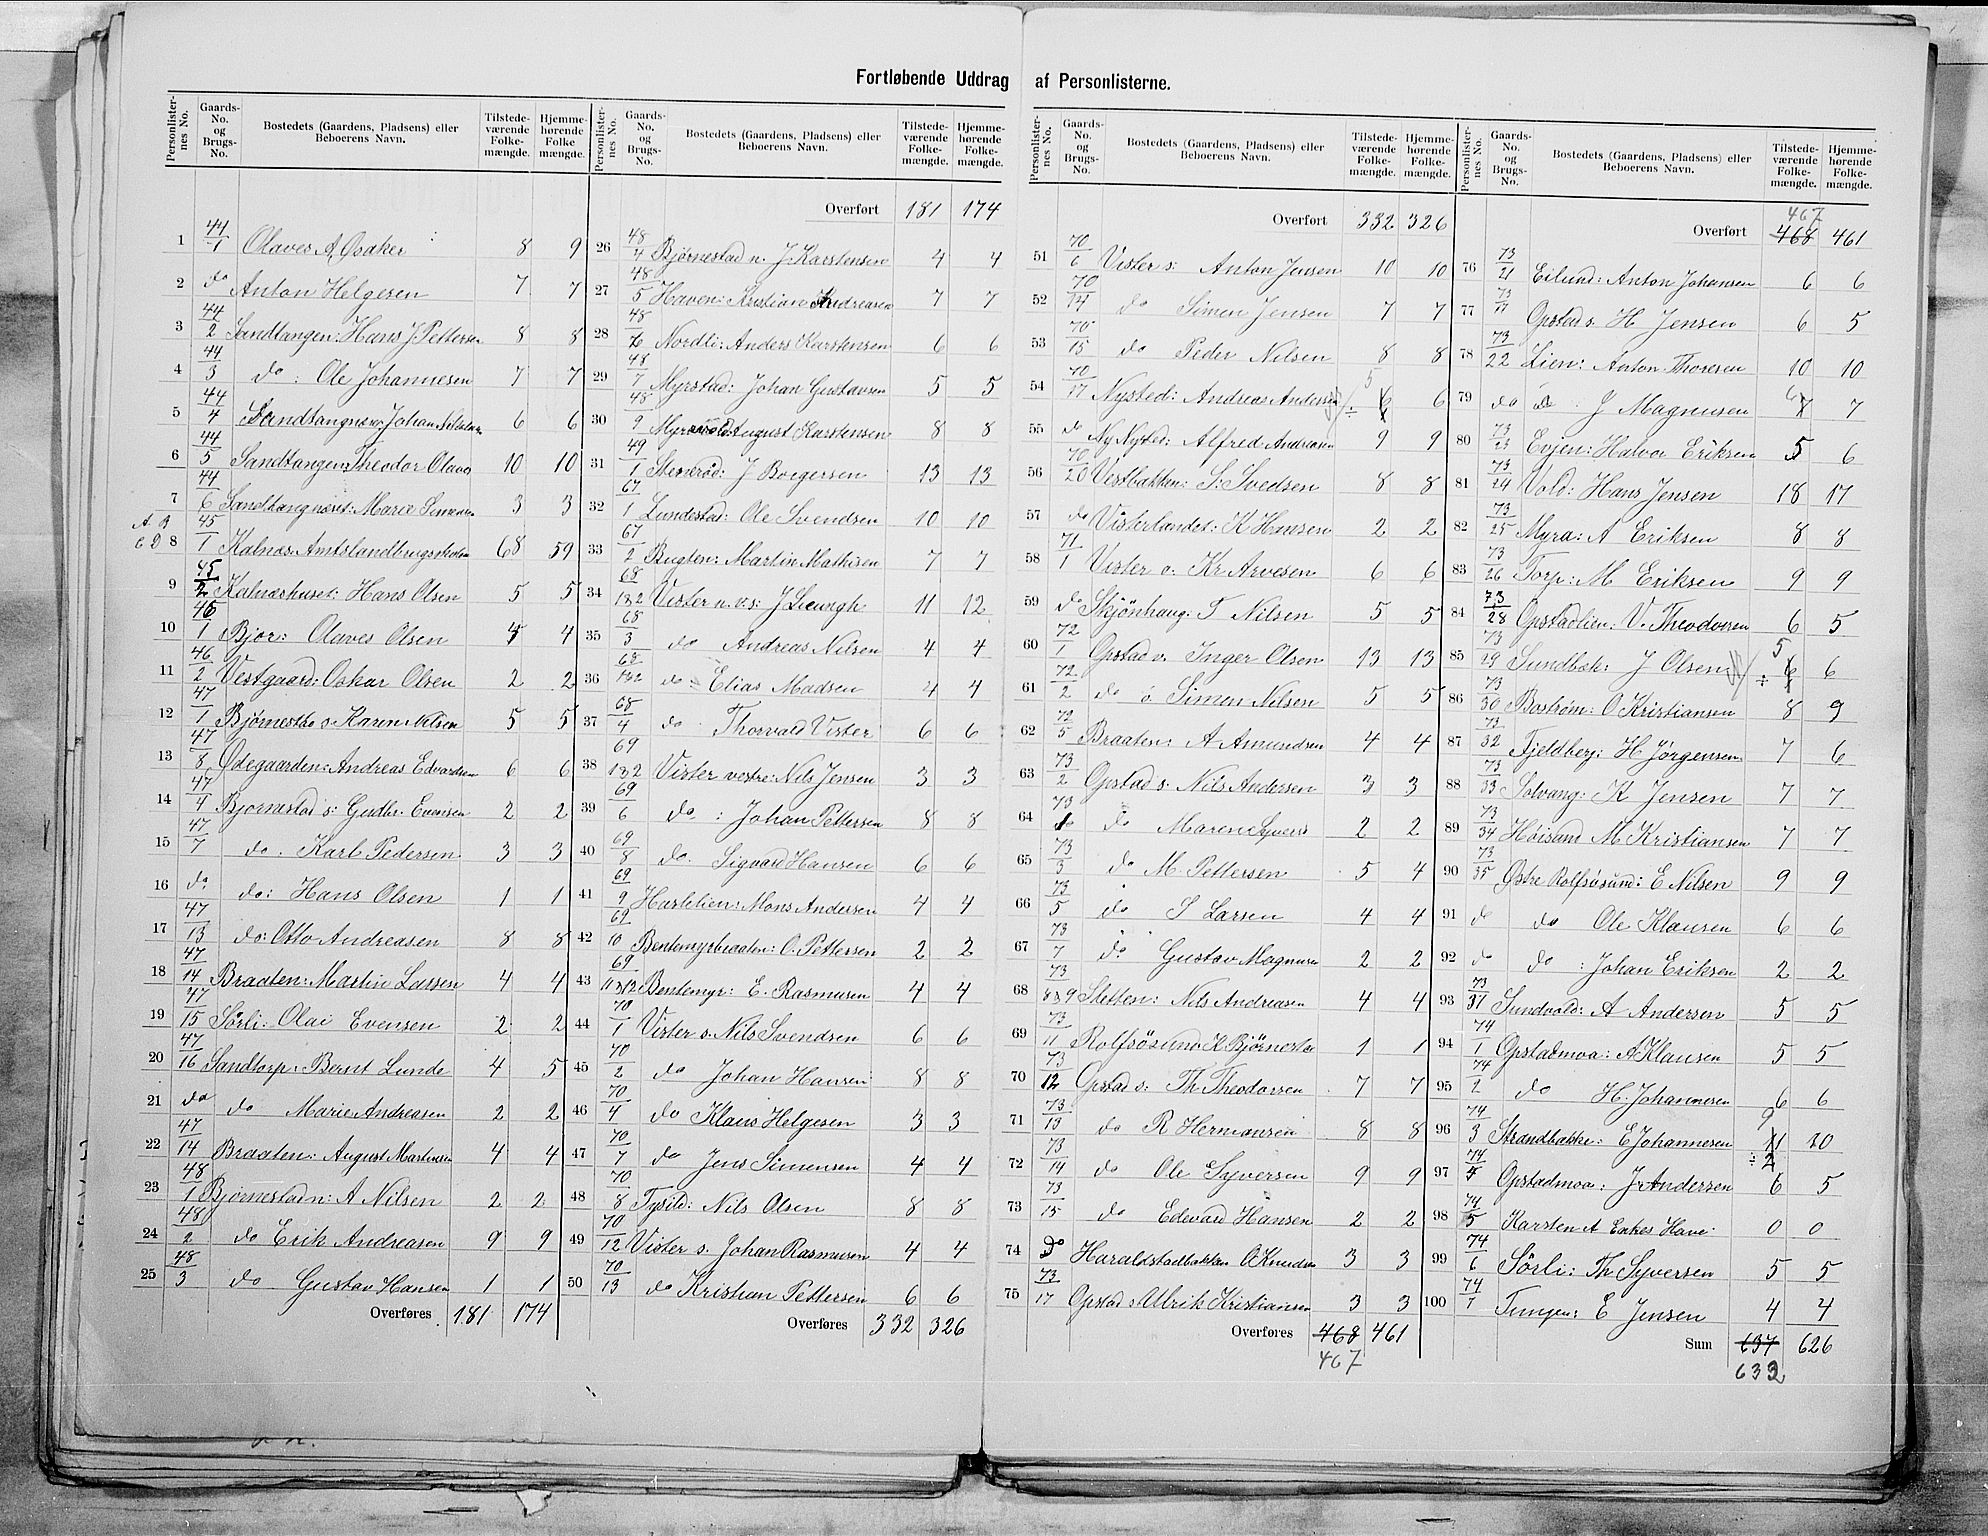 Fortløbende Uddrag af Personlisterne.
Personlister-nes No. Gaards-No. og Brugs-No. Bostedets (Gaardens, Pladsens) eller Beboerens Navn. Tilstede-værende Folke-mængde. Hjemme-hørende Folke-mængde.
1 44/1 Olaves A Opaker 8 9
2 do Anton Helgesen 7 7
3 44/2 Sandtangen: Hans J. Pettersen 8 8
4 44/3 do: Ole Johannesen 7 7
5 44/4 Sandtangnæs: Johan Nilsen 6 6
6 44/5 Sandtangen: Theodor Olavs 10 10
7 44/6 Sandtangnæset: Marie Simensen 3 3
A B C D 8 45/1 Kalnæs Amtslandbrugsskole 68 59
9 45/2 Kalnæshuset: Hans Olsen 5 5
10 46/1 Bjor: Olaves Olsen 4 4
11 46/2 Vestgaard: Oskar Olsen 2 2
12 47/1 Bjørnestad s. Karen Nilsen 5 5
13 47/8 Ødegaarden: Andreas Edvardsen 6 6
14 47/4 Bjornestad s: Gudbr. Evensen 2 2
15 47/7 do. Karl Pedersen 3 3
16 do. do: Hans Olsen 1 1
17 47/13 do: Otto Andreasen 8 8
18 47/14 Braaten: Martin Larsen 4 4
19 47/15 Sörli: Olai Evensen 2 2
20 47/16 Sandtorp: Bernt Lunde 4 5
21 do do Marie Andreasen 2 2
22 47/14 Braaten: August Martinsen 4 4
23 48/1 Bjørnestad n: A Nilsen 2 2
24 48/2 do Erik Andreasen 9 9
25 48/3 do Gustav Hansen 1 1
Overføres 181 174
Personlister-nes No. Gaards-No. og Brugs-No. Bostedets (Gaardens, Pladsens) eller Beboerens Navn. Tilstede-værende Folke-mængde. Hjemme-hørende Folke-mængde.
Overført 181 174
26 48/4 Bjørnestad n. J. Karstensen 4 4
27 48/5 Haven: Kristian Andreasen 7 7
28 48/6 Nordli: Anders Karstensen 6 6
29 48/7 Myrstad: Johan Gustavsen 5 5
30 48/9 Myrvold: August Karstensen 8 8
31 49/1 Stenerød: J Borgersen 13 13
32 67/1 Lundestad: Ole Svendsen 10 10
33 67/2 Bugten: Martin Mathisen 7 7
34 68/1&2 Vister n. v. s: J Lieungh 11 12
35 68/3 do Andreas Nilsen 4 4
36 68/1&2 do Elias Madsen 4 4
37 68/4 do Thorvald Vister 6 6
38 69/1&2 Vister vestre: Nils Jensen 3 3
39 69/6 do: Johan Pettersen 8 8
40 69/8 do. Sigvard Hansen 6 6
41 69/9 Hartelien: Mons Andersen 4 4
42 69/10 Bentemyrbraaten: O. Pettersen 2 2
43 69/11&12 Bentemyr: E. Rasmusen 4 4
44 70/1 Vister s. Nils Svendsen 6 6
45 70/2 do Johan Hansen 8 8
46 70/4 do Klaus Helgesen 3 3
47 70/7 do Jens Simensen 4 4
48 70/8 Tysild: Nils Olsen 8 8
49 70/12 Vister s. Johan Rasmusen 4 4
50 70/13 do Kristian Pettersen 6 6
Overføres 332 326
Personlister-nes No. Gaards-No. og Brugs-No. Bostedets (Gaardens, Pladsens) eller Beboerens Navn. Tilstede-værende Folke-mængde. Hjemme-hørende Folke-mængde.
Overført 332 326
51 70/6 Vister s: Anton Jensen 10 10
52 70/14 do Simen Jensen 7 7
53 70/15 do Peder Nilsen 8 8
54 70/17 Nysted: Andreas Andersen 5 6 ÷ 1 6
55 do Ny Nysted: Alfred Andreasen 9 9
56 70/20 Vestbakken: S: Svedsen 8 8
57 do Visterlandet: K Hansen 2 2
58 71/1 Vister ø. Kr Arvesen 6 6
59 do Skjönhaug: T Nilsen 5 5
60 72/1 Opstad v. Inger Olsen 13 13
61 72/2 do ö Simen Nilsen 5 5
62 72/5 Braaten: A Amundsen 4 4
63 73/2 Opstad s. Nils Andersen 3 3
64 73/1 do Maren Syvers 2 2
65 73/3 do M. Pettersen 5 4
66 73/5 do S Larsen 4 4
67 73/7 do Gustav Magnusen 2 2
68 73/8&9 Sletten: Nils Andreasen 4 4
69 73/11 Rolfsösund K Bjørnestad 1 1
70 73/12 Opstad s: Th. Theodorsen 7 7
71 73/13 do R Hermansen 8 8
72 73/14 do Ole Syversen 9 9
73 73/15 do Edevard Hansen 2 2
74 do Haraldstadbakken O Knudsen 3 3
75 73/17 Opstad s Ulrik Kristiansen 3 3
Overføres 468 461
467
Personlister-nes No. Gaards-No. og Brugs-No. Bostedets (Gaardens, Pladsens) eller Beboerens Navn. Tilstede-værende Folke-mængde. Hjemme-hørende Folke-mængde.
467
Overført 468 461
76 73/21 Eilund: Anton Johansen 6 6
77 73/ Opstad s. H Jensen 6 5
78 73/22 Lien: Anton Thoresen 10 10
79 do do J Magnusen 6 7 7
80 73/23 Evjen: Halvor Eriksen 5 6
81 73/24 Vold: Hans Jensen 18 17
82 73/25 Myra: A Eriksen 8 8
83 73/26 Torp: M Eriksen 9 9
84 73/28 Opstadlien: V. Theodorsen 6 5
85 73/29 Sundbæk: J Olsen 5 6 ÷ 1 6
86 73/30 Boström: O Kristiansen 8 9
87 73/32 Fjeldberg: H Jørgensen 7 6
88 73/33 Solvang: K Jensen 7 7
89 73/34 Høisand M Kristiansen 7 7
90 73/35 Østre Rolfsösund: E Nilsen 9 9
91 do do Ole Klausen 6 6
92 do do: Johan Eriksen 2 2
93 73/37 Sundvold: A Andersen 5 5
94 74/1 Opstadmoa: A Klausen 5 5
95 74/2 do H. Johannesen 6 6
96 74/3 Strandbakke: E Johannesen 9 11 ÷ 2 10
97 74/5 Opstadmoa: J Andersen 6 5
98 74/5 Karsten A Enkes Have 0 0
99 74/6 Sörli: Th Syversen 5 5
100 74/7 Tungen: E Jensen 4 4
Sum 637 626
633